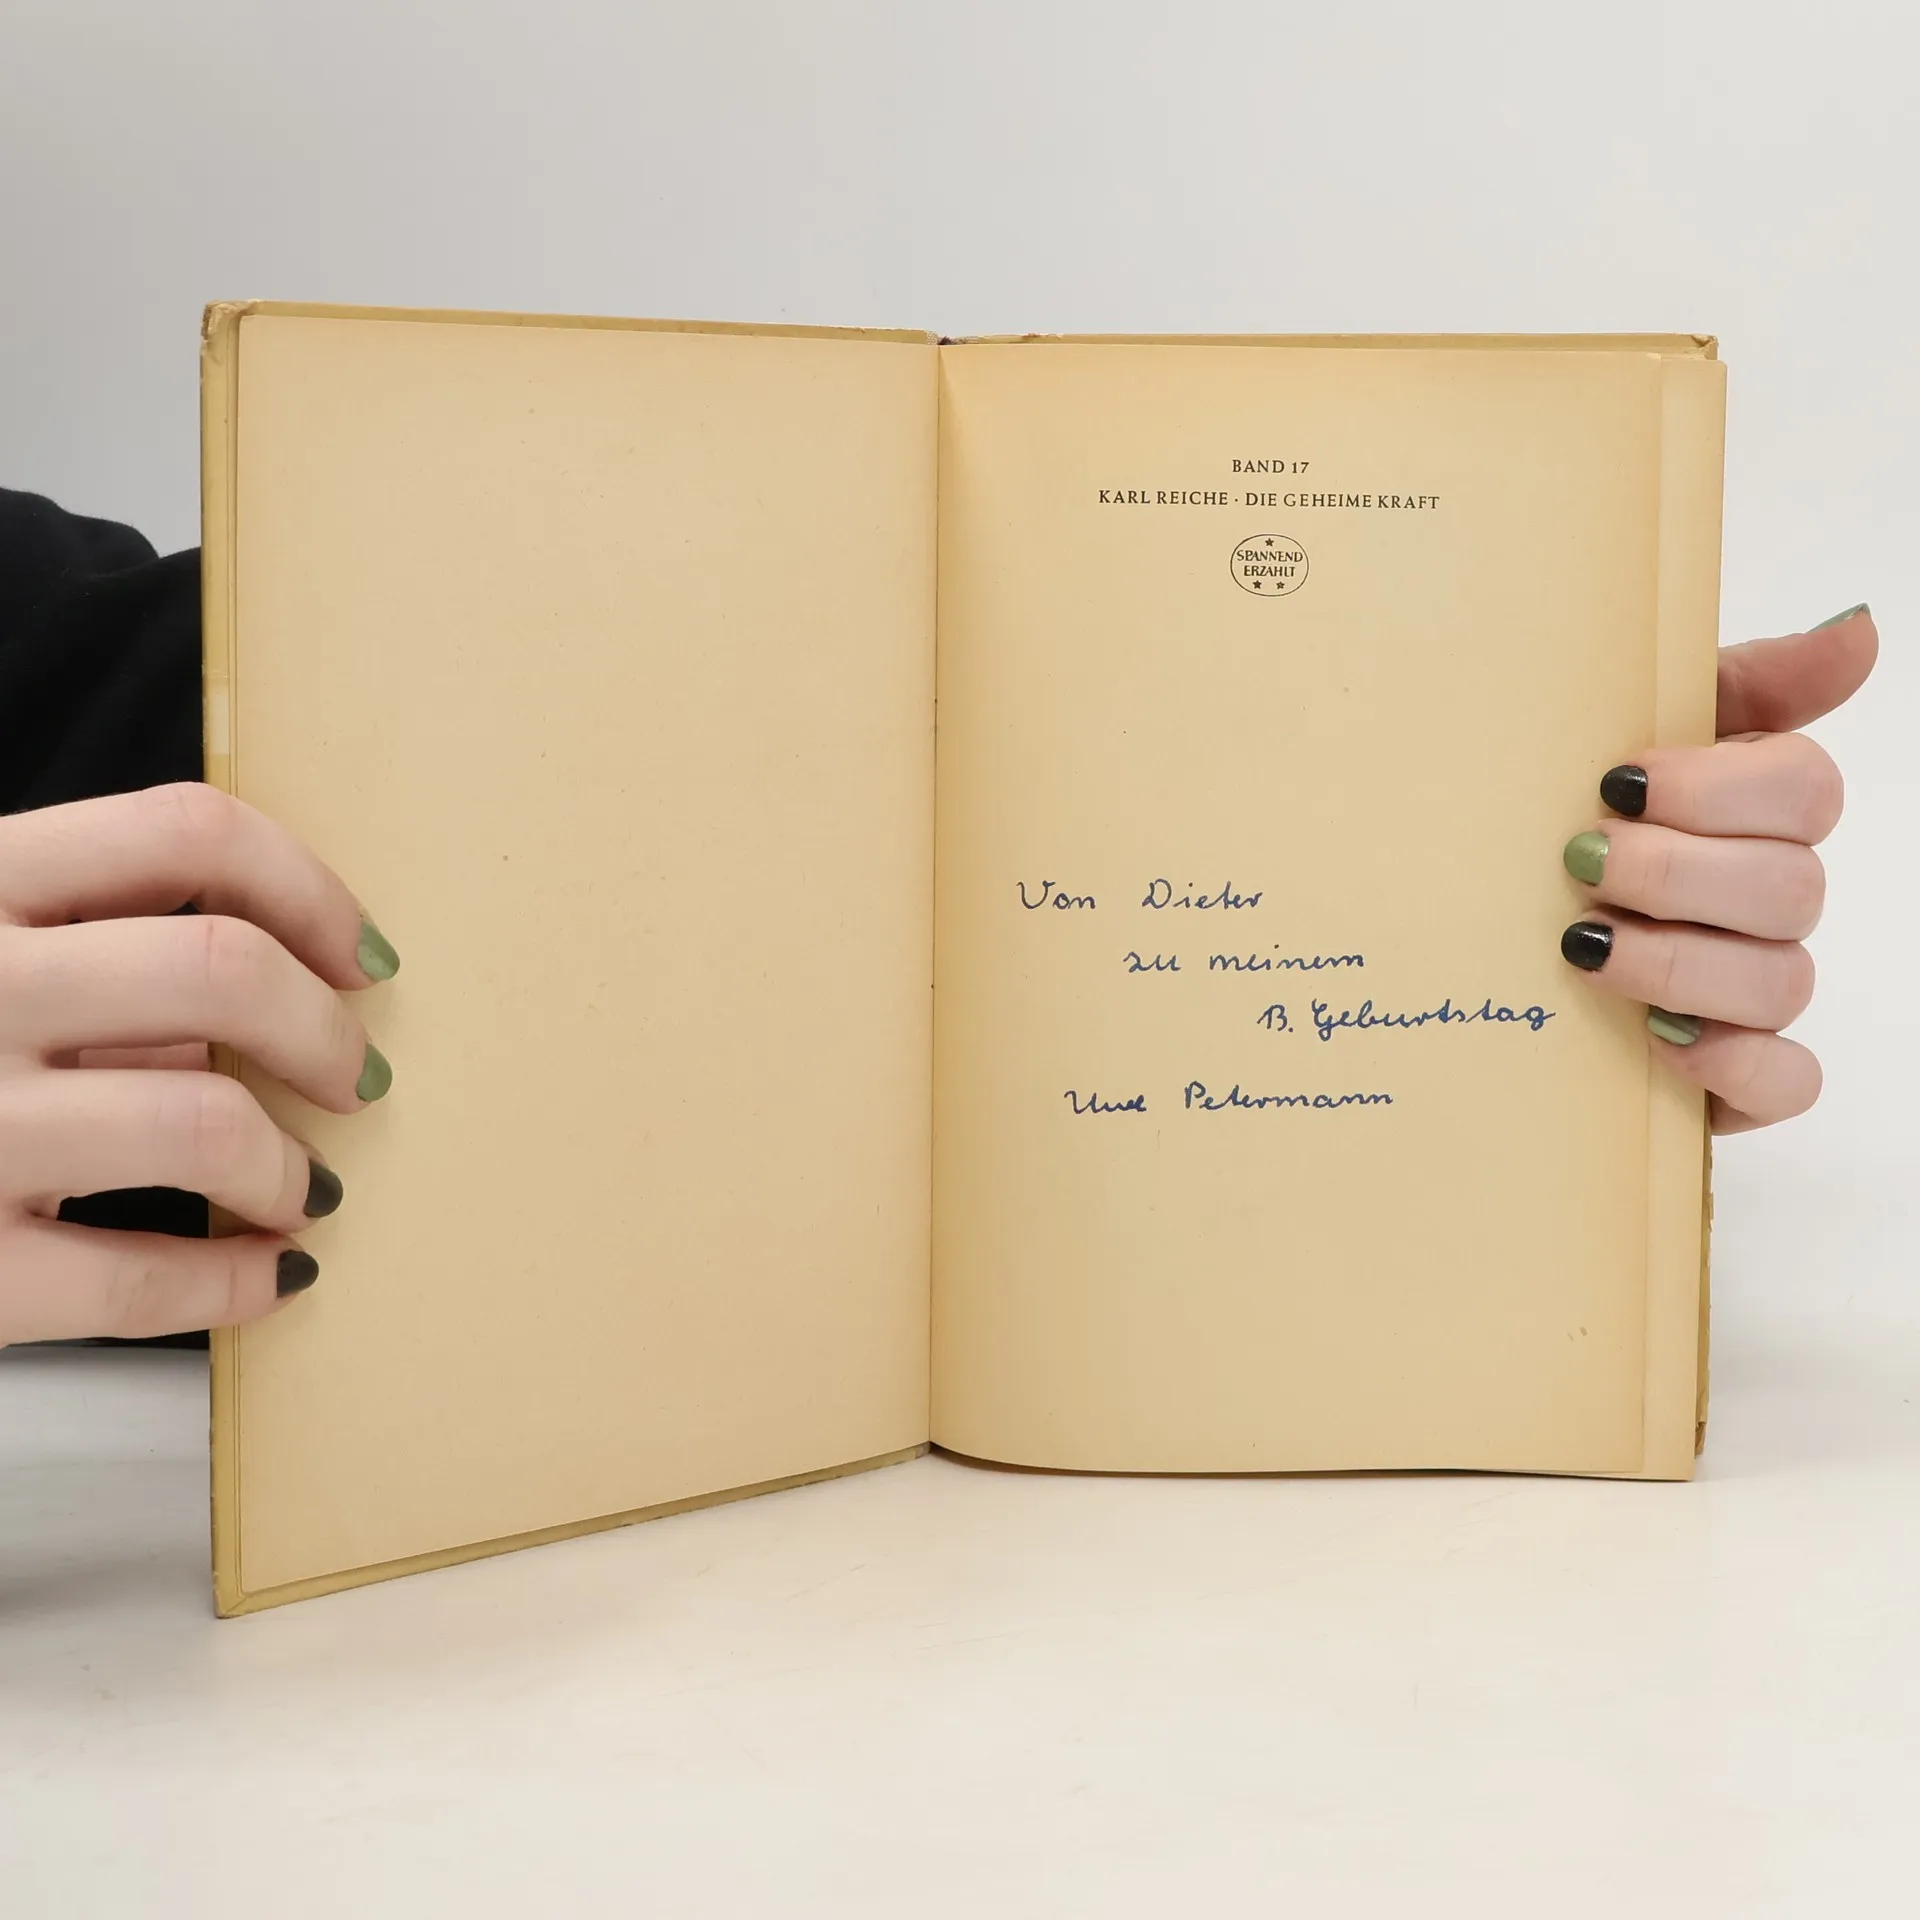 BAND 17
KARL REICHE · DIE GEHEIME KRAFT
SPANNEND
ERZÄHLT
Von Dieter
zu meinem
13. Geburtstag
Uwe Petermann